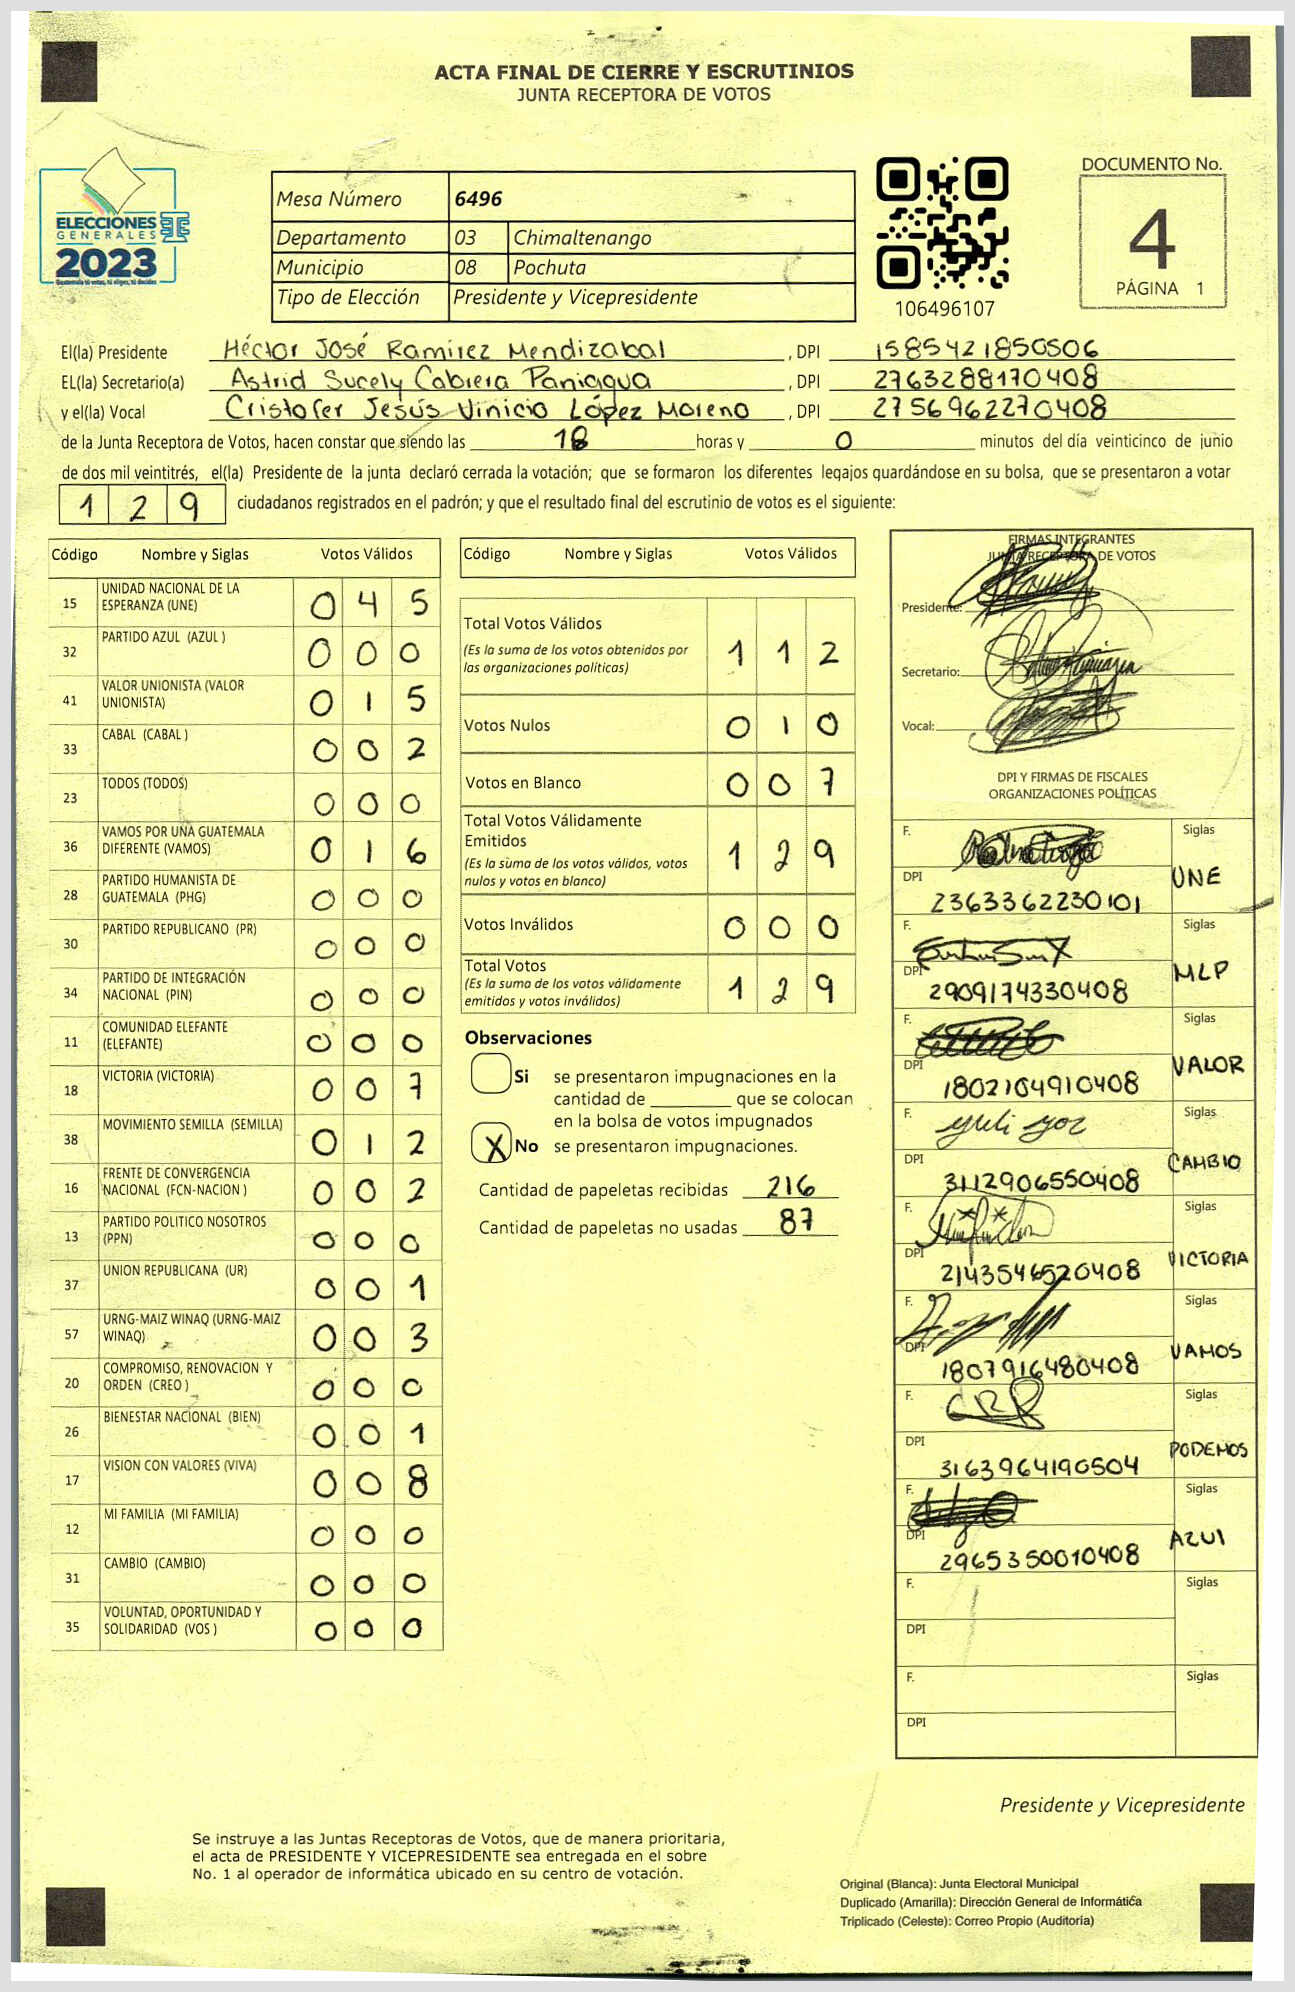 ACTA FINAL DE CIERRE Y ESCRUTINIOS
JUNTA RECEPTORA DE VOTOS
ELECCIONES
GENERALES
2023
Guatemala tú votas, tú eliges, tú decides
Mesa Número 6496
Departamento 03 Chimaltenango
Municipio 08 Pochuta
Tipo de Elección Presidente y Vicepresidente
106496107
DOCUMENTO No.
4
PÁGINA 1
El(la) Presidente Héctor José Ramírez Mendizabal , DPI 1585421850506
EL(la) Secretario(a) Astrid Sucely Cabrera Paniagua , DPI 2763288170408
y el(la) Vocal Cristofer Jesús Vinicio López Moreno , DPI 2756962270408
de la Junta Receptora de Votos, hacen constar que siendo las 18 horas y 0 minutos del día veinticinco de junio
de dos mil veintitrés, el(la) Presidente de la junta declaró cerrada la votación; que se formaron los diferentes legajos quardándose en su bolsa, que se presentaron a votar
1 2 9 ciudadanos registrados en el padrón; y que el resultado final del escrutinio de votos es el siguiente:
Código Nombre y Siglas Votos Válidos
15 UNIDAD NACIONAL DE LA ESPERANZA (UNE) 0 4 5
32 PARTIDO AZUL (AZUL ) 0 0 0
41 VALOR UNIONISTA (VALOR UNIONISTA) 0 1 5
33 CABAL (CABAL ) 0 0 2
23 TODOS (TODOS) 0 0 0
36 VAMOS POR UNA GUATEMALA DIFERENTE (VAMOS) 0 1 6
28 PARTIDO HUMANISTA DE GUATEMALA (PHG) 0 0 0
30 PARTIDO REPUBLICANO (PR) 0 0 0
34 PARTIDO DE INTEGRACIÓN NACIONAL (PIN) 0 0 0
11 COMUNIDAD ELEFANTE (ELEFANTE) 0 0 0
18 VICTORIA (VICTORIA) 0 0 7
38 MOVIMIENTO SEMILLA (SEMILLA) 0 1 2
16 FRENTE DE CONVERGENCIA NACIONAL (FCN-NACION ) 0 0 2
13 PARTIDO POLITICO NOSOTROS (PPN) 0 0 0
37 UNION REPUBLICANA (UR) 0 0 1
57 URNG-MAIZ WINAQ (URNG-MAIZ WINAQ) 0 0 3
20 COMPROMISO, RENOVACION Y ORDEN (CREO ) 0 0 0
26 BIENESTAR NACIONAL (BIEN) 0 0 1
17 VISION CON VALORES (VIVA) 0 0 8
12 MI FAMILIA (MI FAMILIA) 0 0 0
31 CAMBIO (CAMBIO) 0 0 0
35 VOLUNTAD, OPORTUNIDAD Y SOLIDARIDAD (VOS ) 0 0 0
Código Nombre y Siglas Votos Válidos
Total Votos Válidos 1 1 2
(Es la suma de los votos obtenidos por
las organizaciones políticas)
Votos Nulos 0 1 0
Votos en Blanco 0 0 7
Total Votos Válidamente
Emitidos 1 2 9
(Es la suma de los votos válidos, votos
nulos y votos en blanco)
Votos Inválidos 0 0 0
Total Votos 1 2 9
(Es la suma de los votos válidamente
emitidos y votos inválidos)
Observaciones
Si se presentaron impugnaciones en la
cantidad de ________ que se colocan
en la bolsa de votos impugnados
X No se presentaron impugnaciones.
Cantidad de papeletas recibidas 216
Cantidad de papeletas no usadas 87
FIRMAS INTEGRANTES
JUNTA RECEPTORA DE VOTOS
Presidente:
Secretario:
Vocal:
DPI Y FIRMAS DE FISCALES
ORGANIZACIONES POLÍTICAS
F. Siglas
DPI 2363362230101 UNE
F. Siglas
DPI 2909174330408 MLP
F. Siglas
DPI 1802104910408 VALOR
F. Siglas
DPI 3112906550408 CAMBIO
F. Siglas
DPI 2143546520408 VICTORIA
F. Siglas
DPI 1807916480408 VAMOS
F. Siglas
DPI 3163964190504 PODEMOS
F. Siglas
DPI 2965350010408 AZUl
F. Siglas
DPI
F. Siglas
DPI
Presidente y Vicepresidente
Se instruye a las Juntas Receptoras de Votos, que de manera prioritaria,
el acta de PRESIDENTE Y VICEPRESIDENTE sea entregada en el sobre
No. 1 al operador de informática ubicado en su centro de votación.
Original (Blanca): Junta Electoral Municipal
Duplicado (Amarilla): Dirección General de Informática
Triplicado (Celeste): Correo Propio (Auditoría)